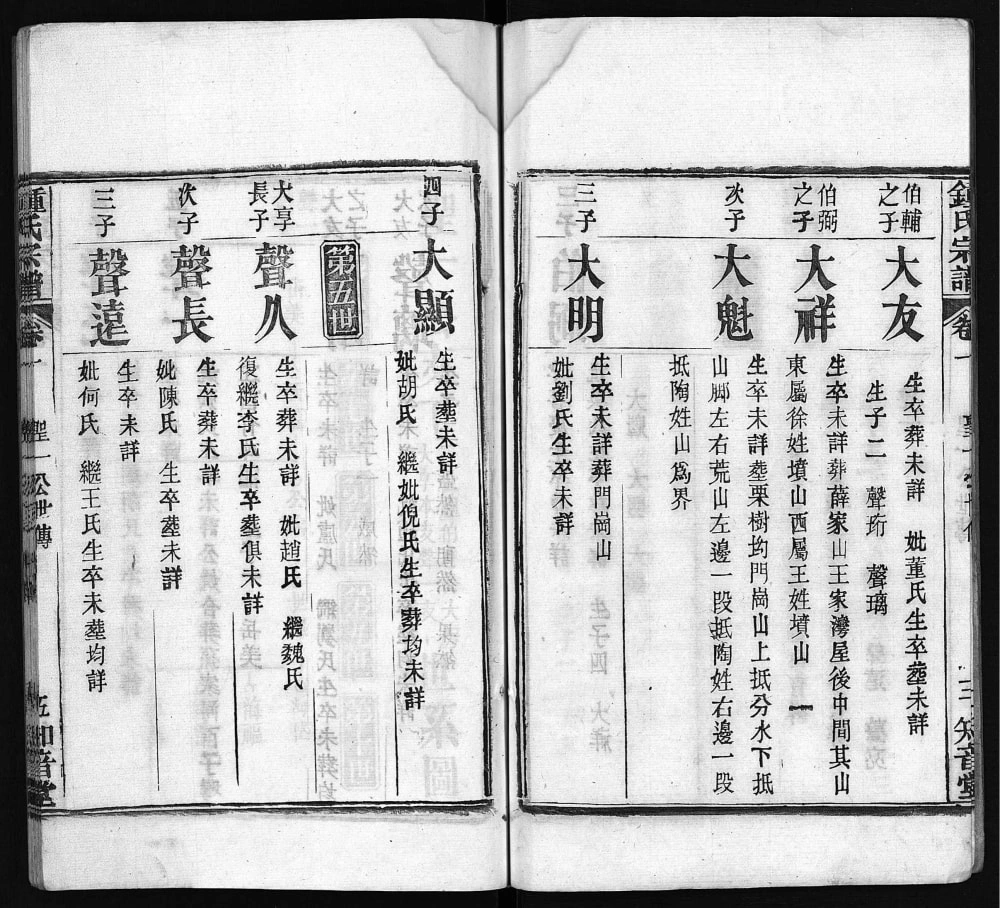 鍾氏宗譜
卷一
知音堂
伯輔
之子
大友
生卒葬未詳 妣董氏生卒塟未詳
生子二 聲珩 聲璃
伯弼
之子
大祥
生卒未詳葬薛家山王家灣屋後中間其山
東屬徐姓墳山西屬王姓墳山
次子
大魁
生卒未詳塟栗樹均門崗山上抵分水下抵
山脚左右荒山左邊一段抵陶姓右邊一段
抵陶姓山爲界
三子
大明
生卒未詳葬門崗山
妣劉氏生卒未詳
四子
大顯
生卒塟未詳
妣胡氏 繼妣倪氏生卒葬均未詳
第五世
大享
長子
聲久
生卒葬未詳 妣趙氏 繼魏氏
復繼李氏生卒塟俱未詳
次子
聲長
生卒葬未詳
妣陳氏 生卒塟未詳
三子
聲遠
生卒塟未詳
妣何氏 繼王氏生卒未塟均詳
鍾氏宗譜
卷一
聖一公世傳
五知音堂